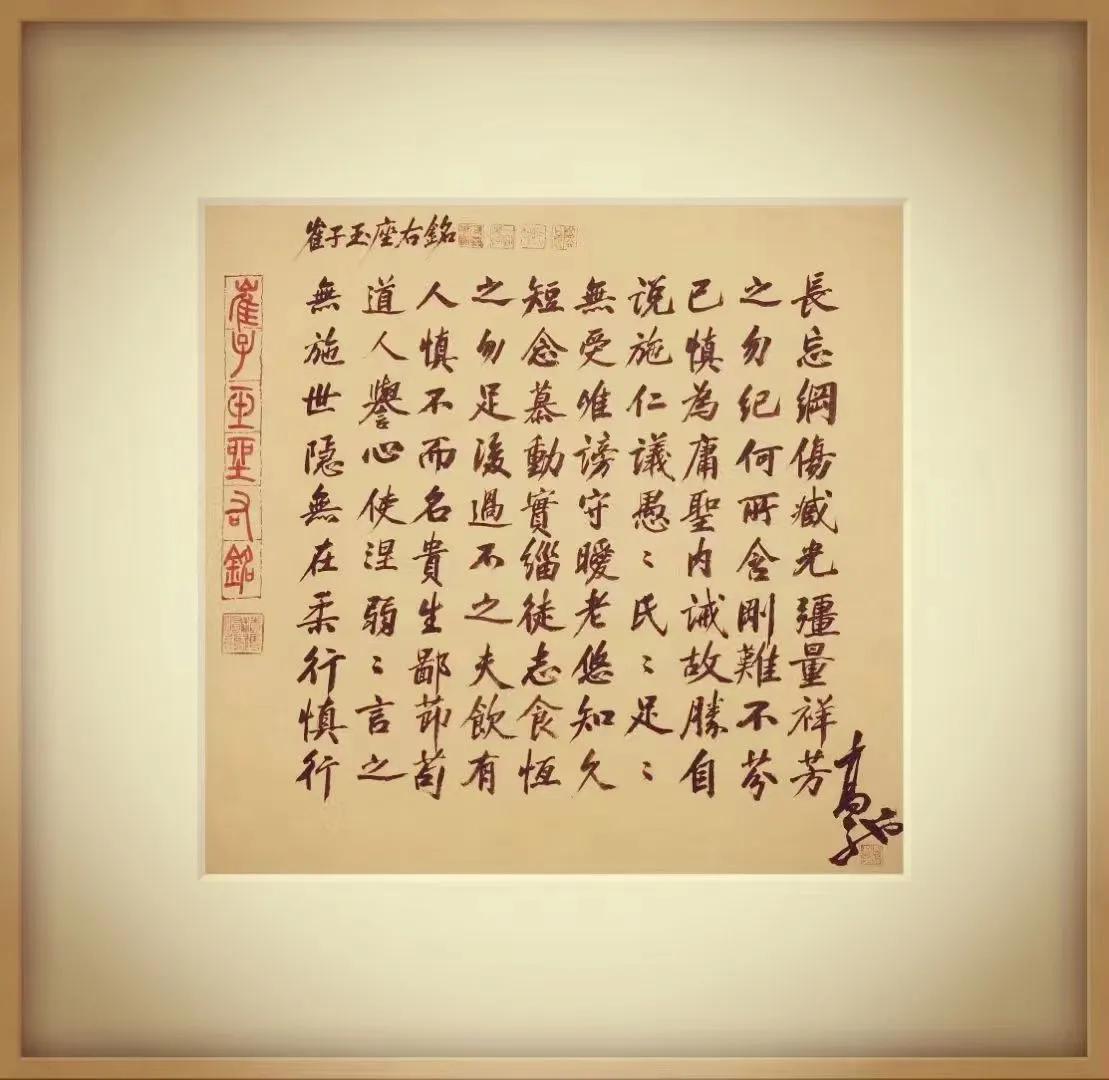 崔子玉座右銘
崔子玉座右銘
無道人之短無説己之長
施人慎勿念受施慎勿忘
世譽不足慕唯仁為紀綱
隱心而後動謗議庸何傷
無使名過實守愚聖所臧
在涅貴不緇曖〻內含光
柔弱生之徒老氏誡剛彊
行〻鄙夫志悠〻故難量
慎言節飲食知足勝不祥
行之苟有恆久〻自芬芳